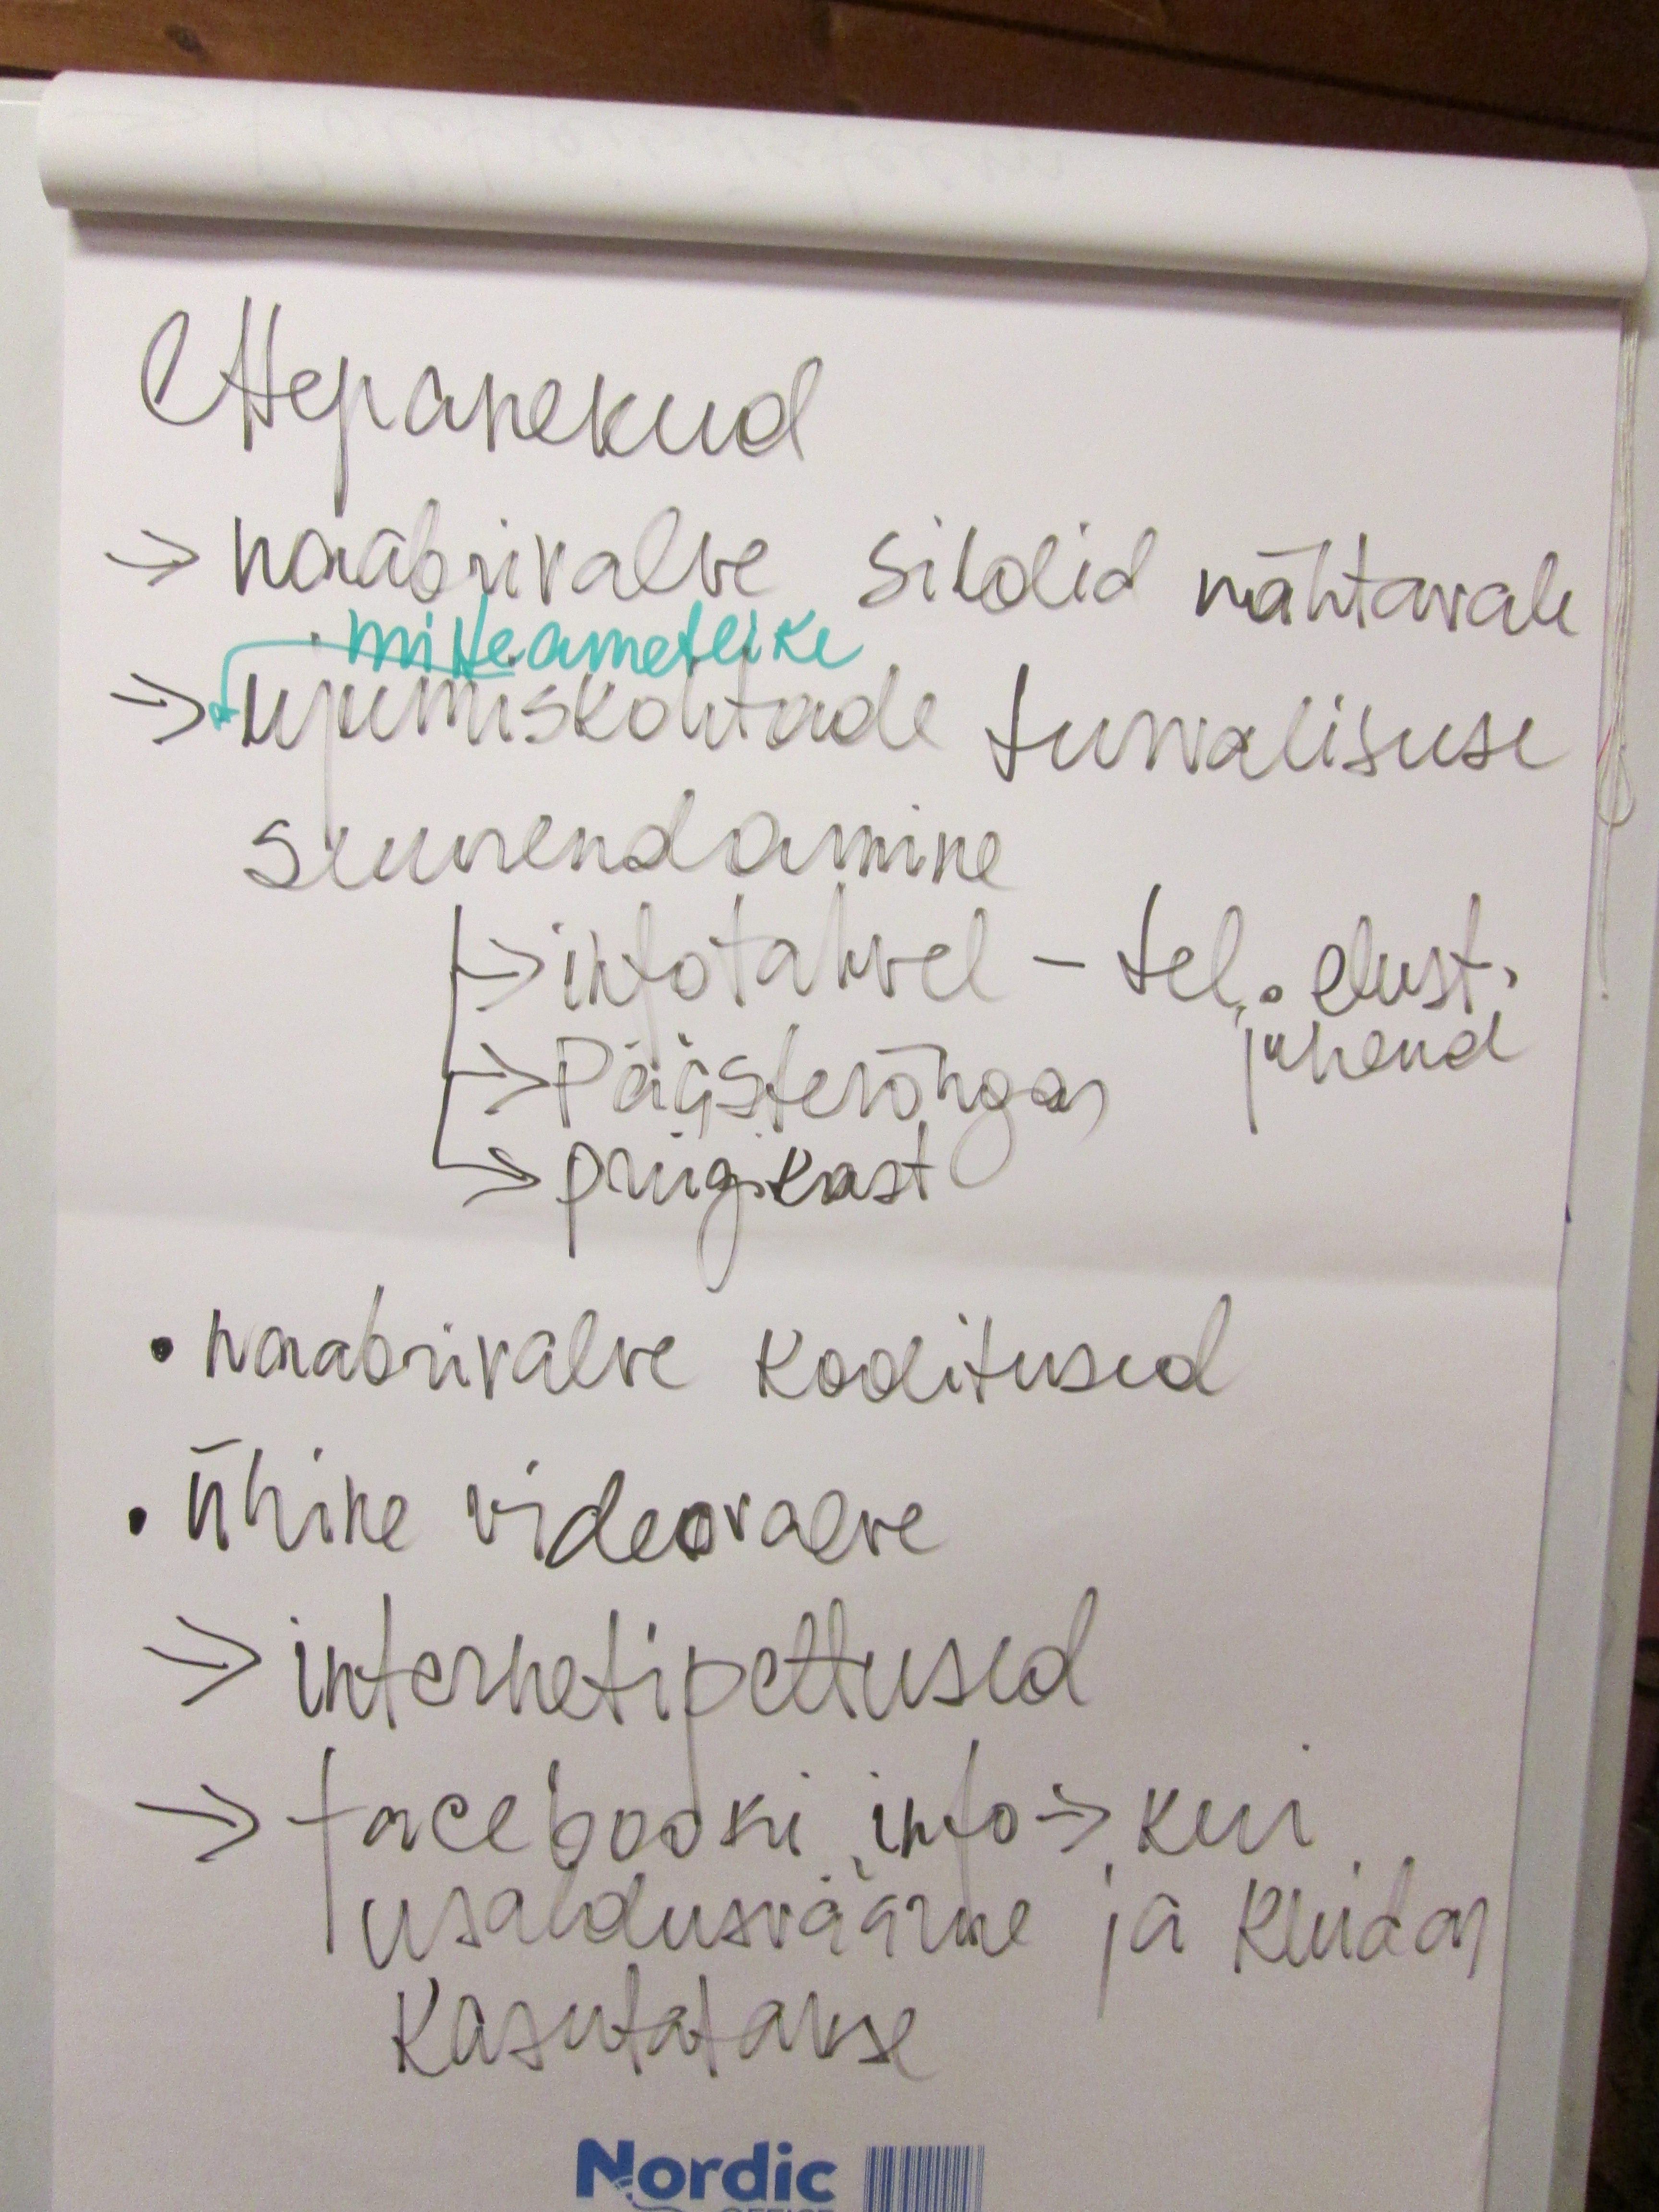 Ettepanekud
→ naabrivalve sildid nähtavale
mitteametlike
→ ujumiskohtade turvalisuse
suurendamine
→ infotahvel – tel. elust.
juhend
→ Päästerõngas
→ prügikast
• naabrivalve koolitused
• ühine videovalve
→ internetipettused
→ facebooki info → kui
usaldusväärne ja kuidas
kasutatakse
Nordic
OFFICE